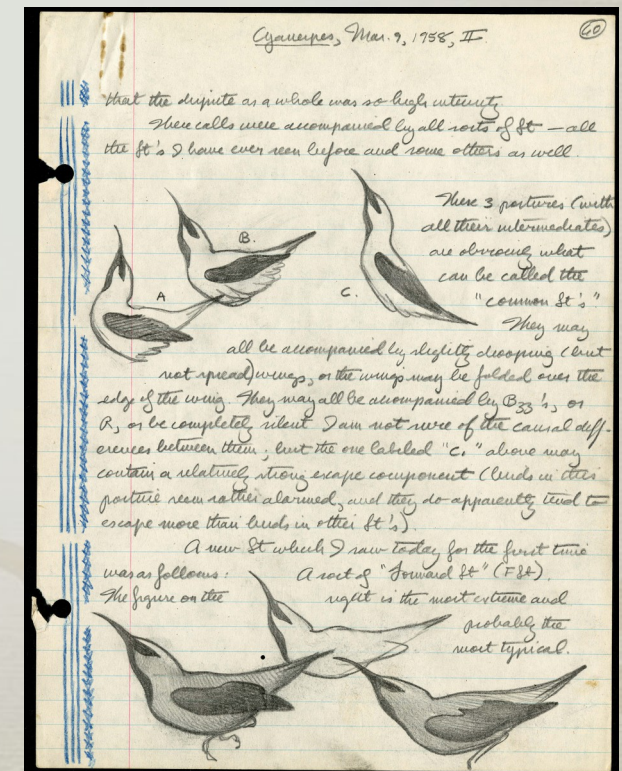 Cyanerpes, Mar. 9, 1958, II
60
that the dispute as a whole was so high intensity.
These calls were accompanied by all sorts of St — all
the St's I have ever seen before and some others as well.
These 3 postures (with
all their intermediates)
are obviously what
can be called the
"common St's".
They may
A
B.
C.
all be accompanied by slightly drooping (but
not spread) wings, or the wings may be folded over the
edge of the wing. They may all be accompanied by B33's, or
R, or be completely silent. I am not sure of the causal diff-
erences between them; but the one labeled "C." above may
contain a relatively strong escape component (birds in this
posture seem rather alarmed, and they do apparently tend to
escape more than birds in other St's).
A new St which I saw today for the first time
was as follows: A sort of "Forward St" (F St).
The figure on the right is the most extreme and
probably the
most typical.